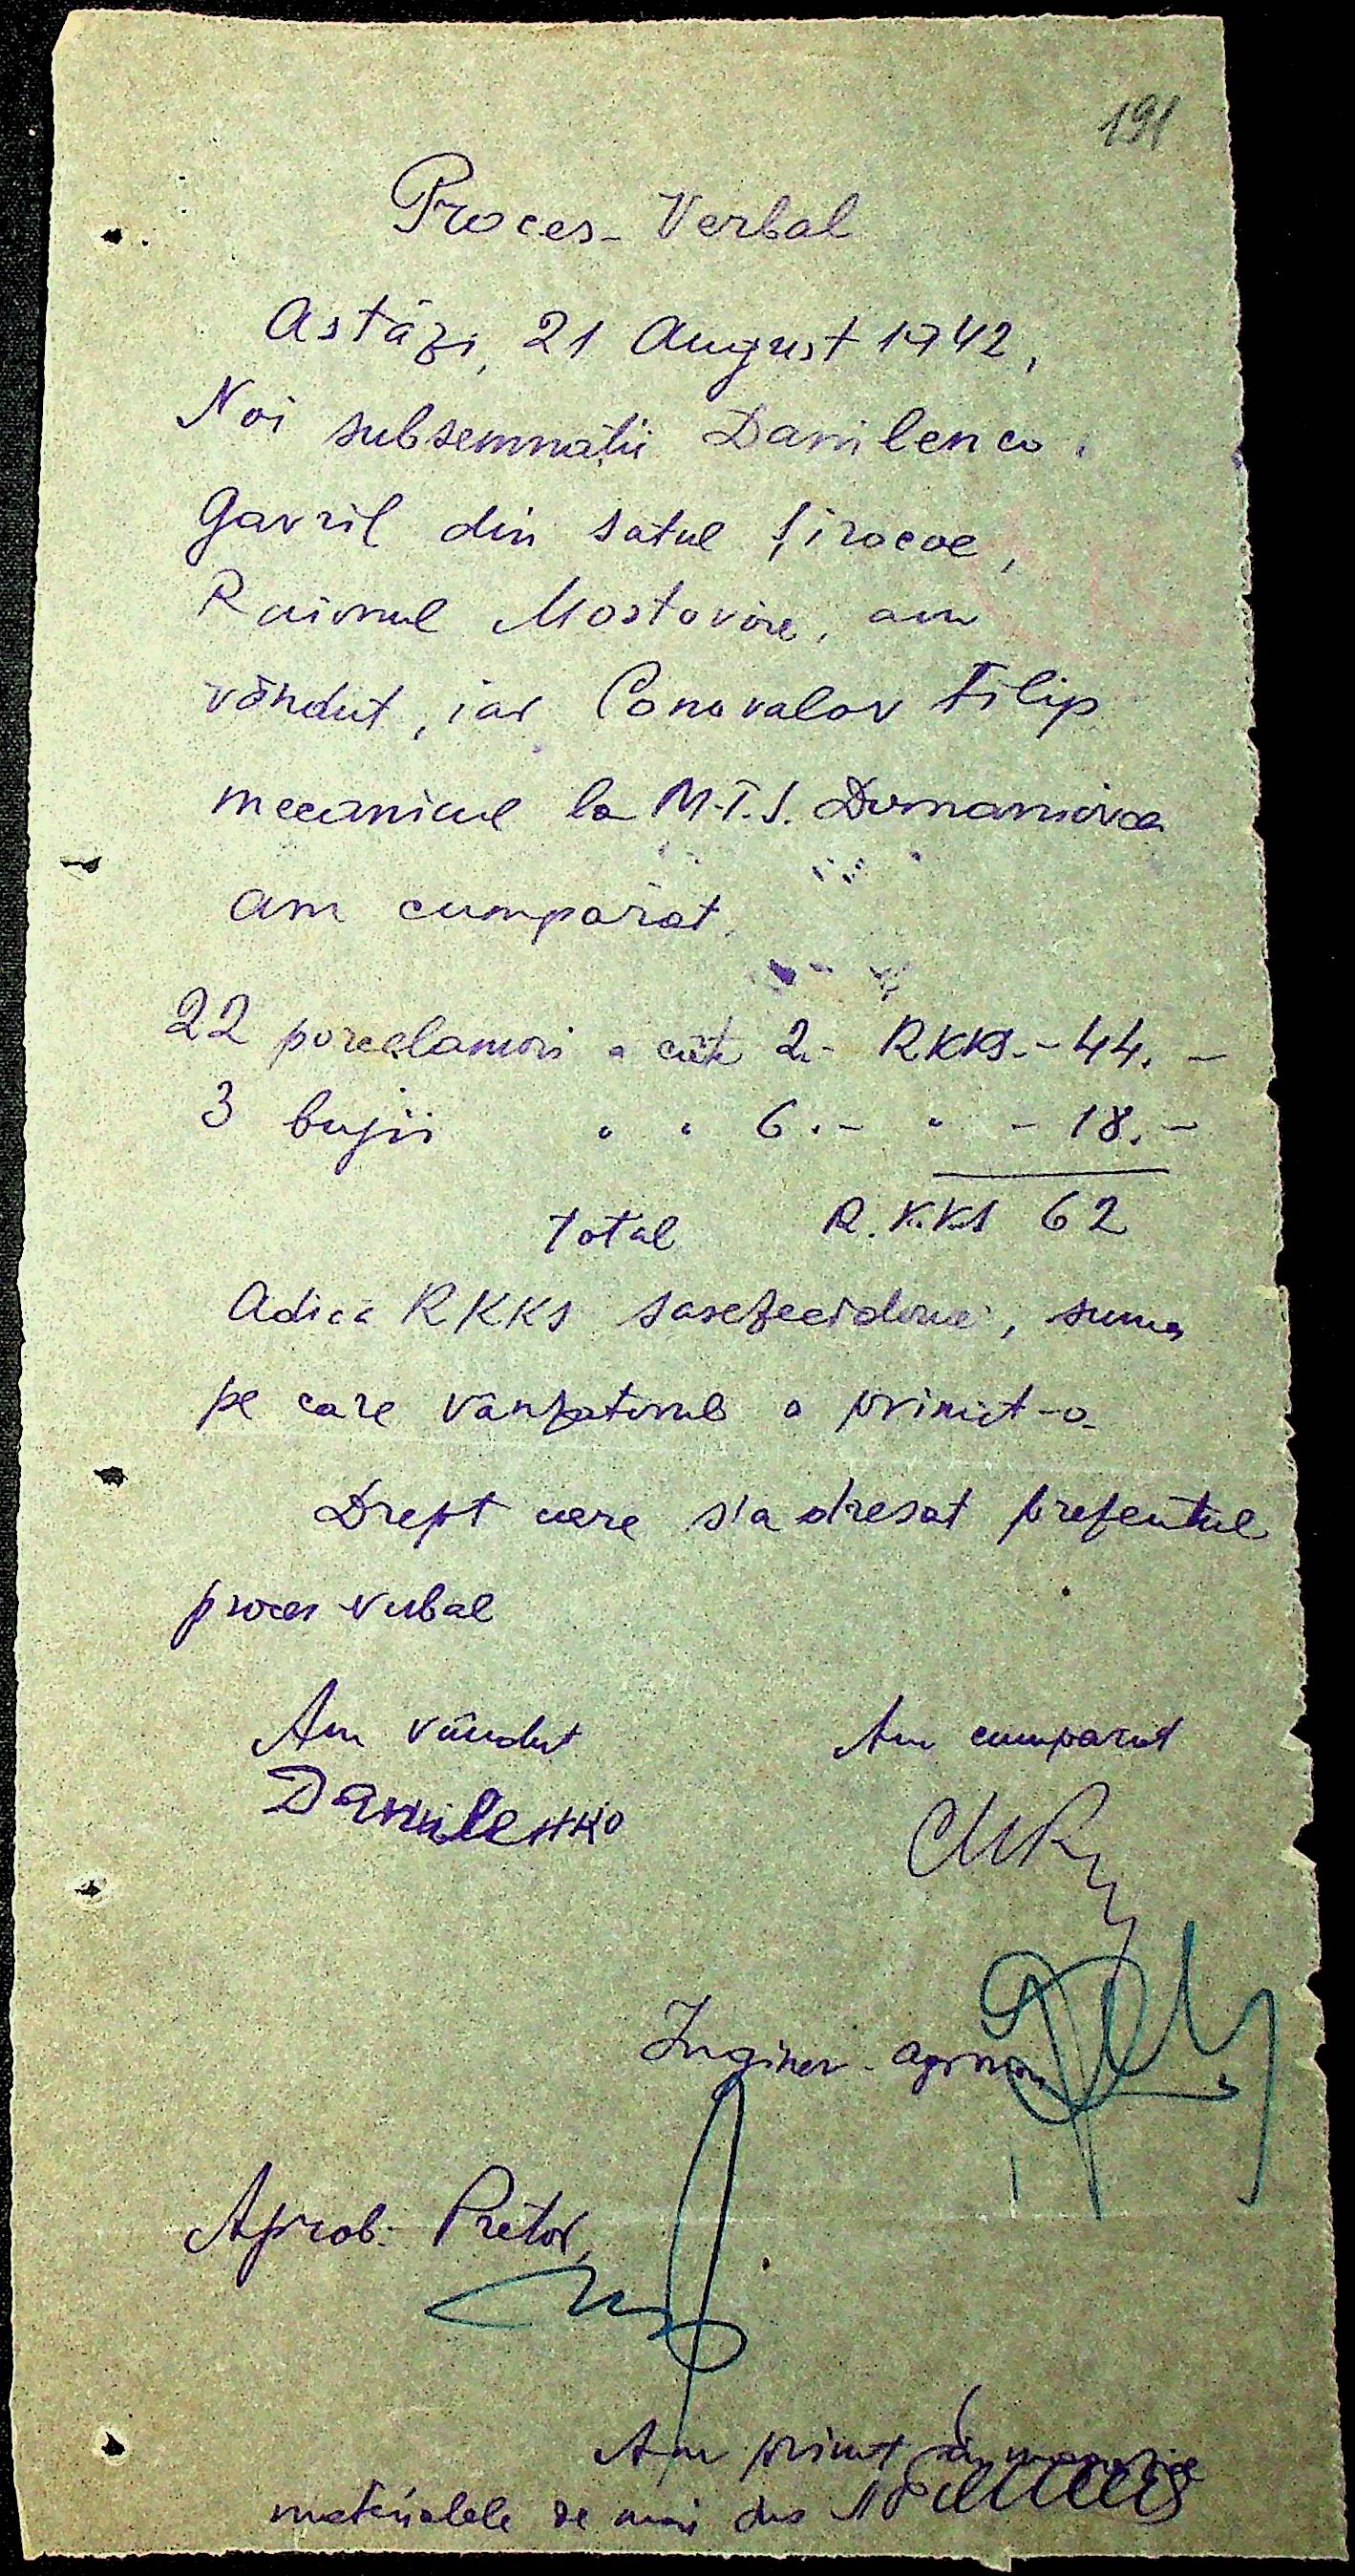 191
Proces-Verbal
Astăzi, 21 August 1942,
Noi subsemnații Danilenco
Gavril din satul Șirocoe,
Raionul Mostovoie, am
vândut, iar Conovalov Filip
mecanicul la M.T.S. Domaniovca
am cumpărat
22 porcelanuri a câte 2.- RKKS.-44.-
3 bujii " " 6.- " - 18.-
Total R.KKS 62
Adică RKKS șasezecidouă, suma
pe care vânzatorul a primit-o
Drept care s'a dresat prezentul
proces-verbal
Am vândut Am cumparat
Даниленко
Inginer-agronom
Aprob. Pretor,
Am primit în magazie
materialele de mai sus